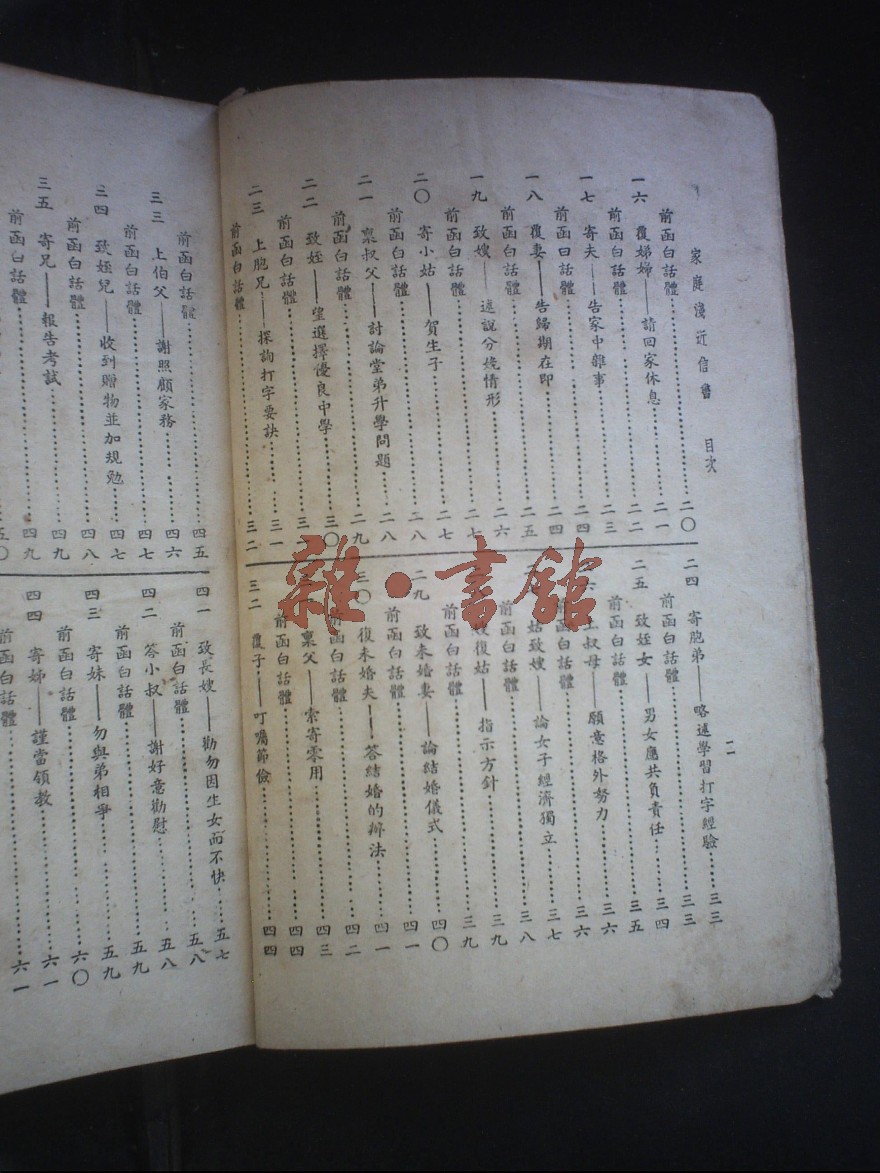 家庭淺近信書 目次
二
前函白話體……二〇
一六 復娣婦——請回家休息……二一
前函白話體……二二
一七 寄夫——告家中雜事……二三
前函白話體……二四
一八 復妻——告歸期在即……二四
前函白話體……二五
一九 致嫂——述說分娩情形……二六
前函白話體……二七
二〇 寄小姑——賀生子……二七
前函白話體……二八
二一 稟叔父——討論堂弟升學問題……二八
前函白話體……二九
二二 致姪——望選擇優良中學……三〇
前函白話體……三
二三 上胞兄——探詢打字要訣……三一
前函白話體……三二
二四 寄胞弟——略述學習打字經驗……三三
前函白話體……三三
二五 致姪女——男女應共負責任……三四
前函白話體……三五
六 上叔母——願意格外努力……三六
前函白話體……三六
二 姑致嫂——論女子經濟獨立……三七
前函白話體……三八
嫂復姑——指示方針……三九
前函白話體……三九
二九 致未婚妻——論結婚儀式……四〇
前函白話體……四一
三〇 復未婚夫——答結婚的辦法……四一
前函白話體……四二
稟父——索寄零用……四三
前函白話體……四四
三二 復子——叮囑節儉……四四
前函白話體……四五
三三 上伯父——謝照顧家務……四六
前函白話體……四七
三四 致姪兒——收到贈物並加規勉……四七
前函白話體……四八
三五 寄兄——報告考試……四九
前函白話體……四九
五〇
四一 致長嫂——勸勿因生女而不快……五七
前函白話體……五八
四二 答小叔——謝好意勸慰……五八
前函白話體……五九
四三 寄妹——勿與弟相爭……五九
前函白話體……六〇
四四 寄姊——謹當領教……六一
前函白話體……六一
雜·書館